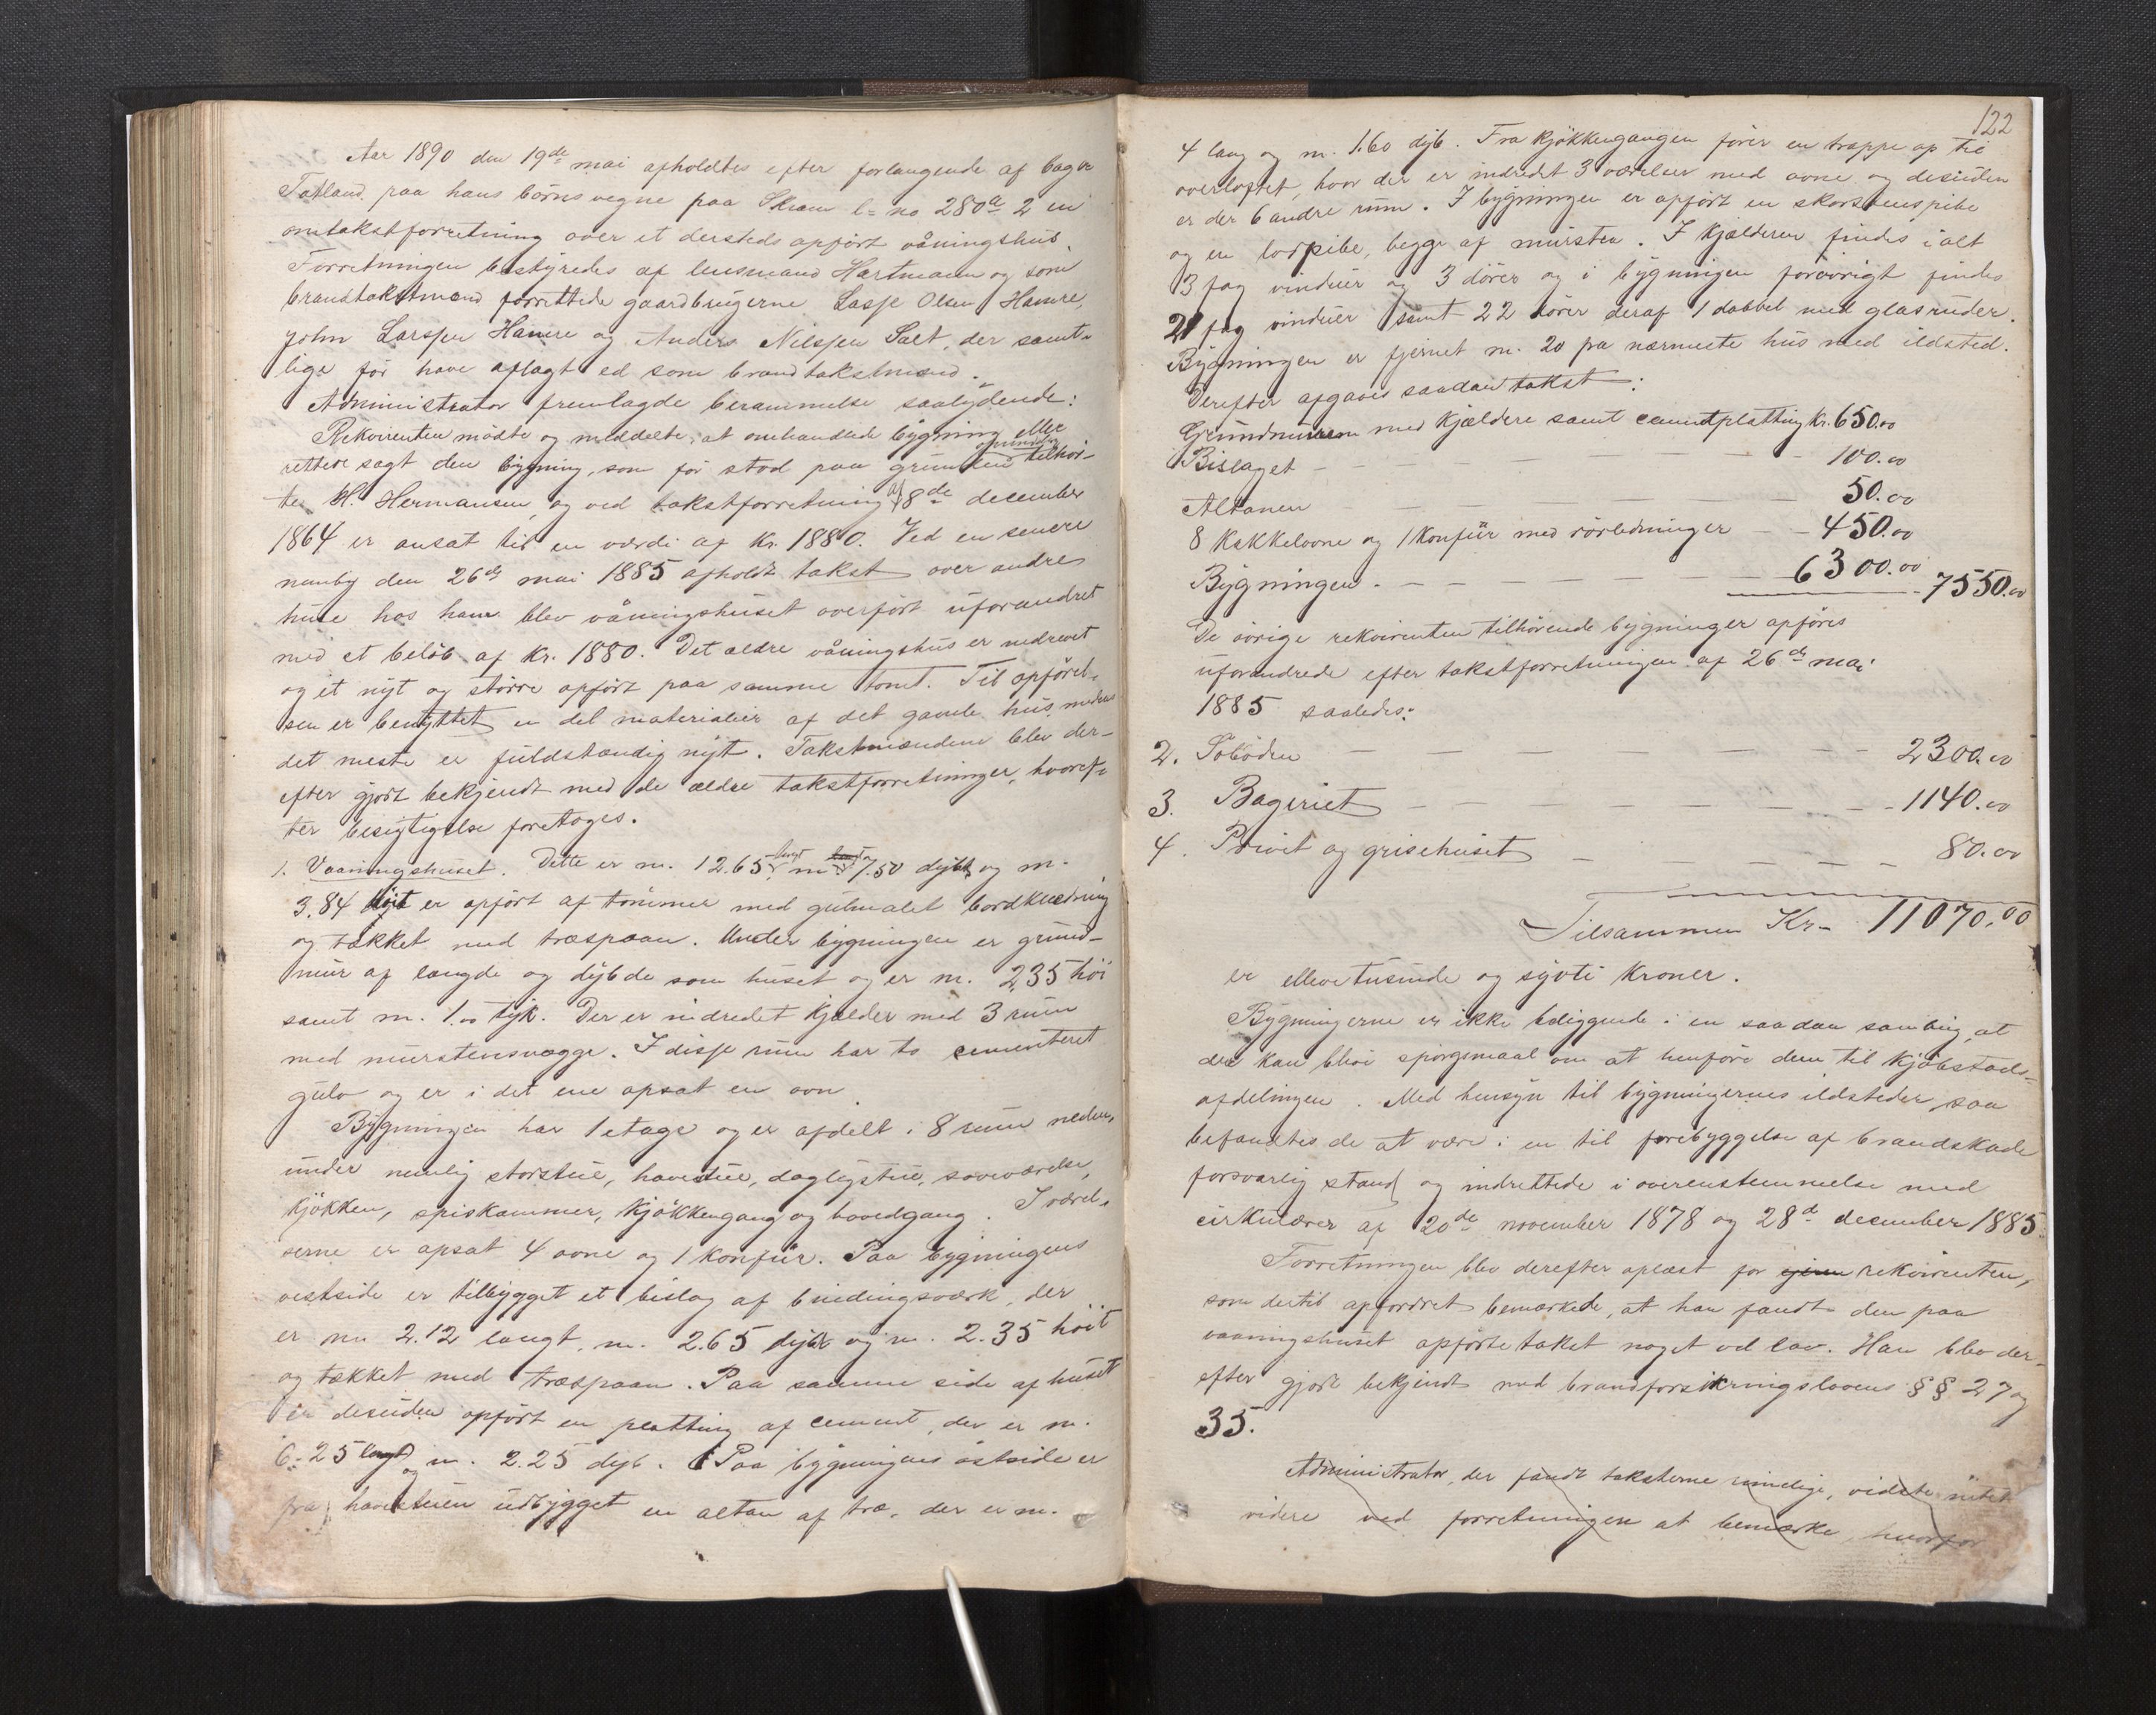 Aar 1890 den 19de mai afholdtes efter forlangende af bager
Tatland paa hans börns vegne paa Skram l= no 280a 2 en
omtakstforretning over et dersteds opfört våningshus.
Forretningen bestyredes af lensmand Hartmann og som
brandtakstmænd forrettede gaardbrugerne Lasse Olsen Hamre,
John Larssen Hamre og Anders Nilssen Salt, der samt-
lige för have aflagt ed som brandtakstmænd.
Administrator fremlagde berammelse saalydende:
Rekvirenten mödte og meddelte, at omhandlede bygning eller
rettere sagt den bygning, som för stod paa grunden tilhör-
te H. Hermansen, og ved takstforretning af 8de december
1864 er ansat til en værdi af Kr. 1880. Ved en senere
nemlig den 26de mai 1885 afholdt takst over andre
huse hos ham blev våningshuset overfört uforandret
med et belöb af Kr. 1880. Det ældre våningshus er nedrevet
og et nyt og större opfört paa samme tomt. Til opförel-
sen er benyttet en del materialier af det gamle hus, medens
det meste er fuldstændig nyt. Takstmændene blev der-
efter gjort bekjendt med de ældre takstforretninger, hvoref-
ter besigtigelse foretoges.
1. Vaaningshuset. Dette er m. 12.65 langt m 7.50 dybt og m.
3.84 höit er opfört af tömmer med gulmalet bordklædning
og tækket med træspaan. Under bygningen er grund-
mur af længde og dybde som huset og er m. 2.35 höi
samt m. 1.00 tyk. Der er indredet kjælder med 3 rum
med murstensvægge. I disse rum har to cementeret
gulv og er i det ene opsat en ovn.
Bygningen har 1 etage og er afdelt i 8 rum neden-
under nemlig storstue, havestue, dagligstue, soveværelse,
kjökken, spiskammer, kjökkengang og hovedgang. I værel-
serne er opsat 4 ovne og 1 Konfür. Paa bygningens
vestside er tilbygget et bislag af bindingsværk, der
er m 2.12 langt, m. 2.65 dybt og m. 2.35 höit
og tækket med træspaan. Paa samme side af huset
er desuden opfört en platting af cement, der er m.
6.25 langt og m. 2.25 dyb. Paa bygningens östside er
fra havestuen udbygget en altan af træ, der er m.
122
4 lang og m. 1.60 dyb. Fra kjökkengangen förer en trappe op til
overloftet, hvor der er indredt 3 værelser med ovne og desuden
er der 6 andre rum. I bygningen er opfört en skorstenspibe
og en lodpibe, begge af mursten. I kjælderen findes i alt
3 fag vinduer og 3 dörer og i bygningen forövrigt findes
21 fag vinduer samt 22 dörer deraf 1 dobbel med glasruder.
Bygningen er fjernet m. 20 fra nærmeste hus med ildsted.
Derefter afgaves saadan takst:
Grundmuren med kjældere samt cementplatting Kr. 650.00
Bislaget 100.00
Altanen 50.00
8 Kakkelovne og 1 Konfür med rörledninger 450.00
Bygningen 6300.00 7550.00
De övrige rekvirenten tilhörende bygninger opföres
uforandrede efter takstforretningen af 26de mai
1885 saaledes:
2. Söboden 2300.00
3. Bageriet 1140.00
4. Privet og grisehuset 80.00
Tilsammen Kr 11070.00
er ellevetusinde og sytti Kroner.
Bygningerne er ikke beliggende i en saadan sambyg, at
der kan blive spörgsmaal om at henföre dem til kjöbstads-
afdelingen. Med hensyn til bygningernes ildsteder, saa
befandtes de at være i en til forebyggelse af brandskade
forsvarlig stand og indrettede i overensstemmelse med
cirkulærer af 20de november 1878 og 28de december 1885.
Forretningen blev derefter oplæst for rekvirenten,
som dertil opfordret bemærkede, at han fandt den paa
vaaningshuset opförte takst noget vel lav. Han blev der-
efter gjort bekjendt med brandforsikringslovens §§ 27 og
35.
Administrator, der fandt taksterne rimelige, vidste intet
videre ved forretningen at bemærke, hvorfor